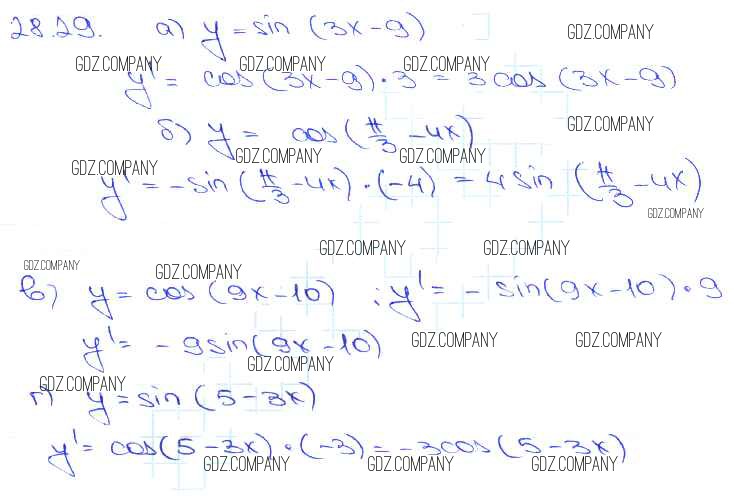 28.29. а) y = sin (3x - 9)
GDZ.COMPANY
GDZ.COMPANY GDZ.COMPANY GDZ.COMPANY
y' = cos (3x - 9) · 3 = 3 cos (3x - 9)
GDZ.COMPANY
б) y = cos (π/3 - 4x)
GDZ.COMPANY GDZ.COMPANY GDZ.COMPANY
y' = - sin (π/3 - 4x) · (-4) = 4 sin (π/3 - 4x)
GDZ.COMPANY
GDZ.COMPANY GDZ.COMPANY
GDZ.COMPANY GDZ.COMPANY
в) y = cos (9x - 10) ; y' = - sin (9x - 10) · 9
y' = - 9 sin (9x - 10)
GDZ.COMPANY GDZ.COMPANY
GDZ.COMPANY
GDZ.COMPANY
г) y = sin (5 - 3x)
y' = cos (5 - 3x) · (-3) = - 3 cos (5 - 3x)
GDZ.COMPANY GDZ.COMPANY GDZ.COMPANY